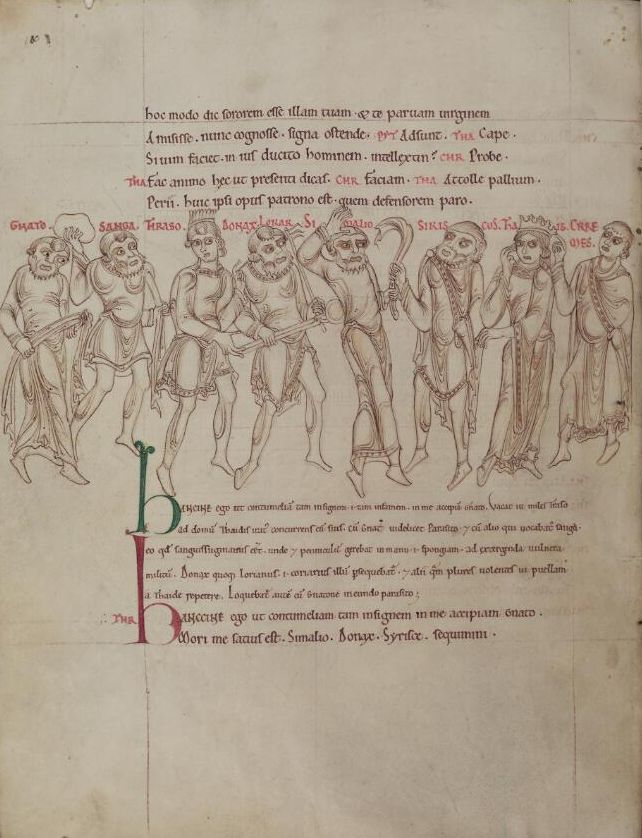 hoc modo dic sororem esse illam tuam · & te paruam uirginem
Amisisse · nunc cognosse · signa ostende · PYT Adsunt · THA Cape ·
Si uim faciet · in ius ducito hominem · intellextin? CHR Probe ·
THA Fac animo hec ut presenti dicas · CHR faciam · THA Attolle pallium ·
Perii · huic ipsi opus patrono est · quem defensorem paro ·
GNATO · SANGA · TRASO · DONAX · LORAR · SI MALIO · SIRIS CUS · TA IS · CRRE
MES ·
hANCINE ego ut contumeliā tam insignem · i · tam in me accipiā gnato · miles
ad domū Thaidis concurrens cū suis · cū videlicet Parasito · & cū alio qui uocabat sanga ·
eo qd sanguissugnarius erat · unde & peniculū gerebat in manu · i · spongiam · ad extergenda uulnera
militū · Donax quoq Lorarius · i · coriarius illū psequebat · & alii plures uolentes ui puellam
a Thaide repetere · Loquebat aut cū Gnatone ineundo parasito ;
THR hANCCINE ego ut contumeliam tam insignem in me accipiam Gnato ·
Mori me satius est · Simalio · Donax · Syrisce · sequimini ·